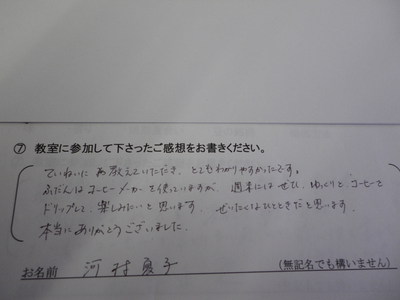 ⑦ 教室に参加して下さったご感想をお書きください。
ていねいに お教えていただき、とてもわかりやすかったです。
ふだんは コーヒーメーカーを使っていますが、週末には ぜひ、ゆっくりと、コーヒーを
ドリップして、楽しみたいと思います。ぜいたくなひとときだと思います。
本当にありがとうございました。
お名前 河村夏子 (無記名でも構いません)